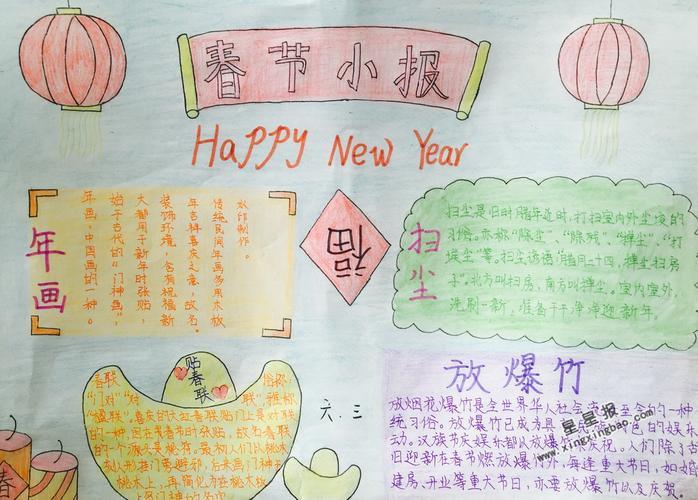 春节小报
Happy New Year
年画
年画,中国画的一种。
始于古代的“门神画”,
大都用于新年时张贴,
装饰环境,含有祝福新
年吉祥喜庆之意,故名。
传统民间年画多用木板
印制作。
福
扫尘
扫尘是旧时腊年近时,打扫室内外尘垢的
习俗。亦称“除尘”、“除残”、“掸尘”、“打
埃尘”等。扫尘谚语“腊月二十四,掸尘扫房
子”。北方叫扫房,南方叫掸尘。室内室外,
洗刷一新,准备干干净净迎新年。
贴春联
春联 俗称:
“门对”“对 联”,雅称
“楹联”。喜庆的 贴门上是对联
的一种,因在春节时张贴,故名春联
的一个源头是桃符。最初人们以桃木
刻人形挂门旁避邪,后来画门神
桃木上,再简化为在桃木板
上 门神的名字
六.三
春
放爆竹
放烟花爆竹是全世界华人社会 的一种
统习俗。放爆竹已成为具 色的娱乐
动。汉族节庆娱乐都以放爆竹 庆祝。人们除了
旧迎新在春节燃放爆竹外,每逢重大节日,如
建房、开业等重大节日,亦要放爆竹以及庆贺
星星报
xingxingbao.com